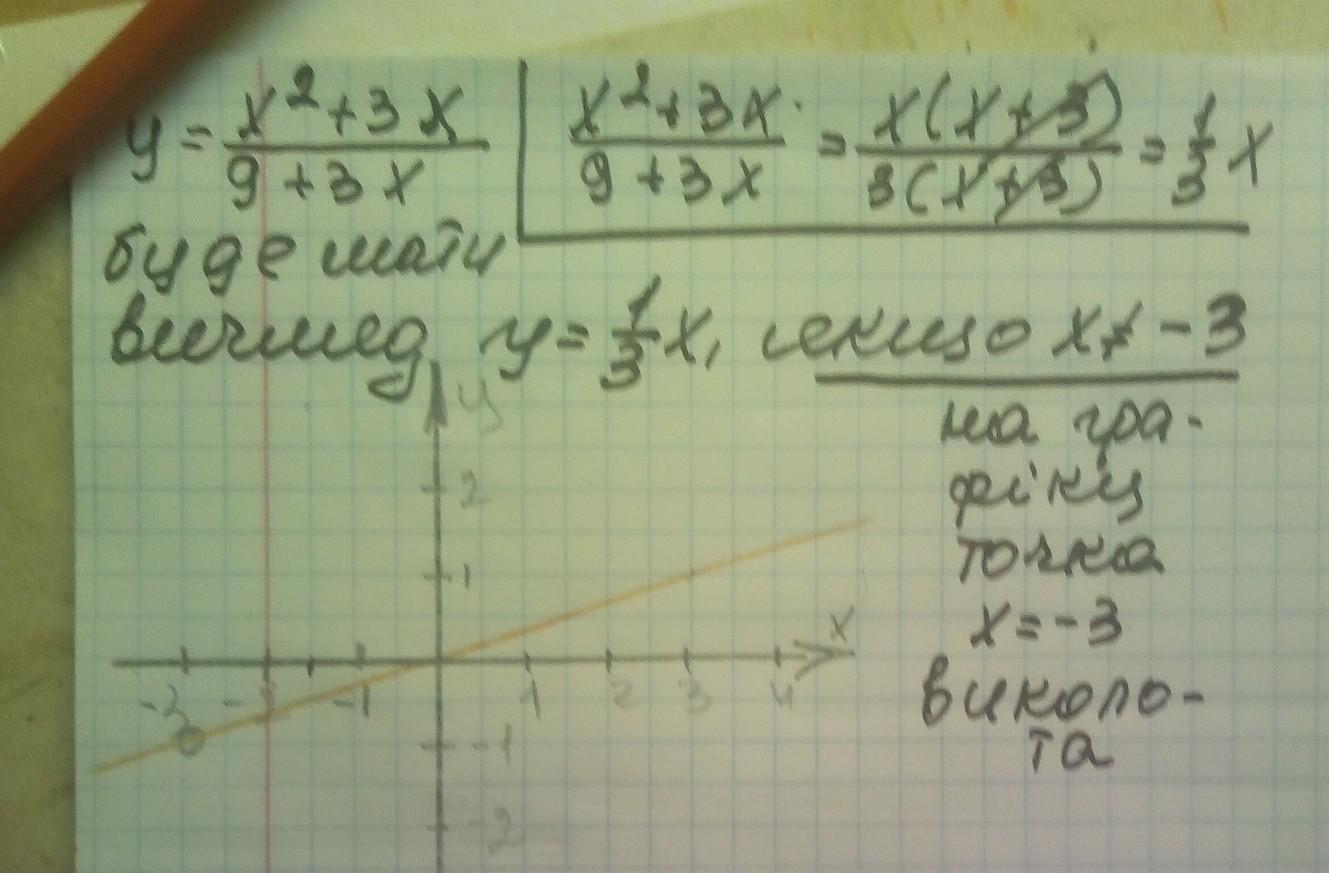 y = \frac{x^2+3x}{9+3x}
\frac{x^2+3x}{9+3x} = \frac{x(x+3)}{3(x+3)} = \frac{1}{3}x
буде мати
вигляд y = \frac{1}{3}x, якщо x ≠ -3
на гра-
фіку
точка
x = -3
виколо-
та
y
2
1
x
-3 -2 -1 1 2 3 4
-1
-2